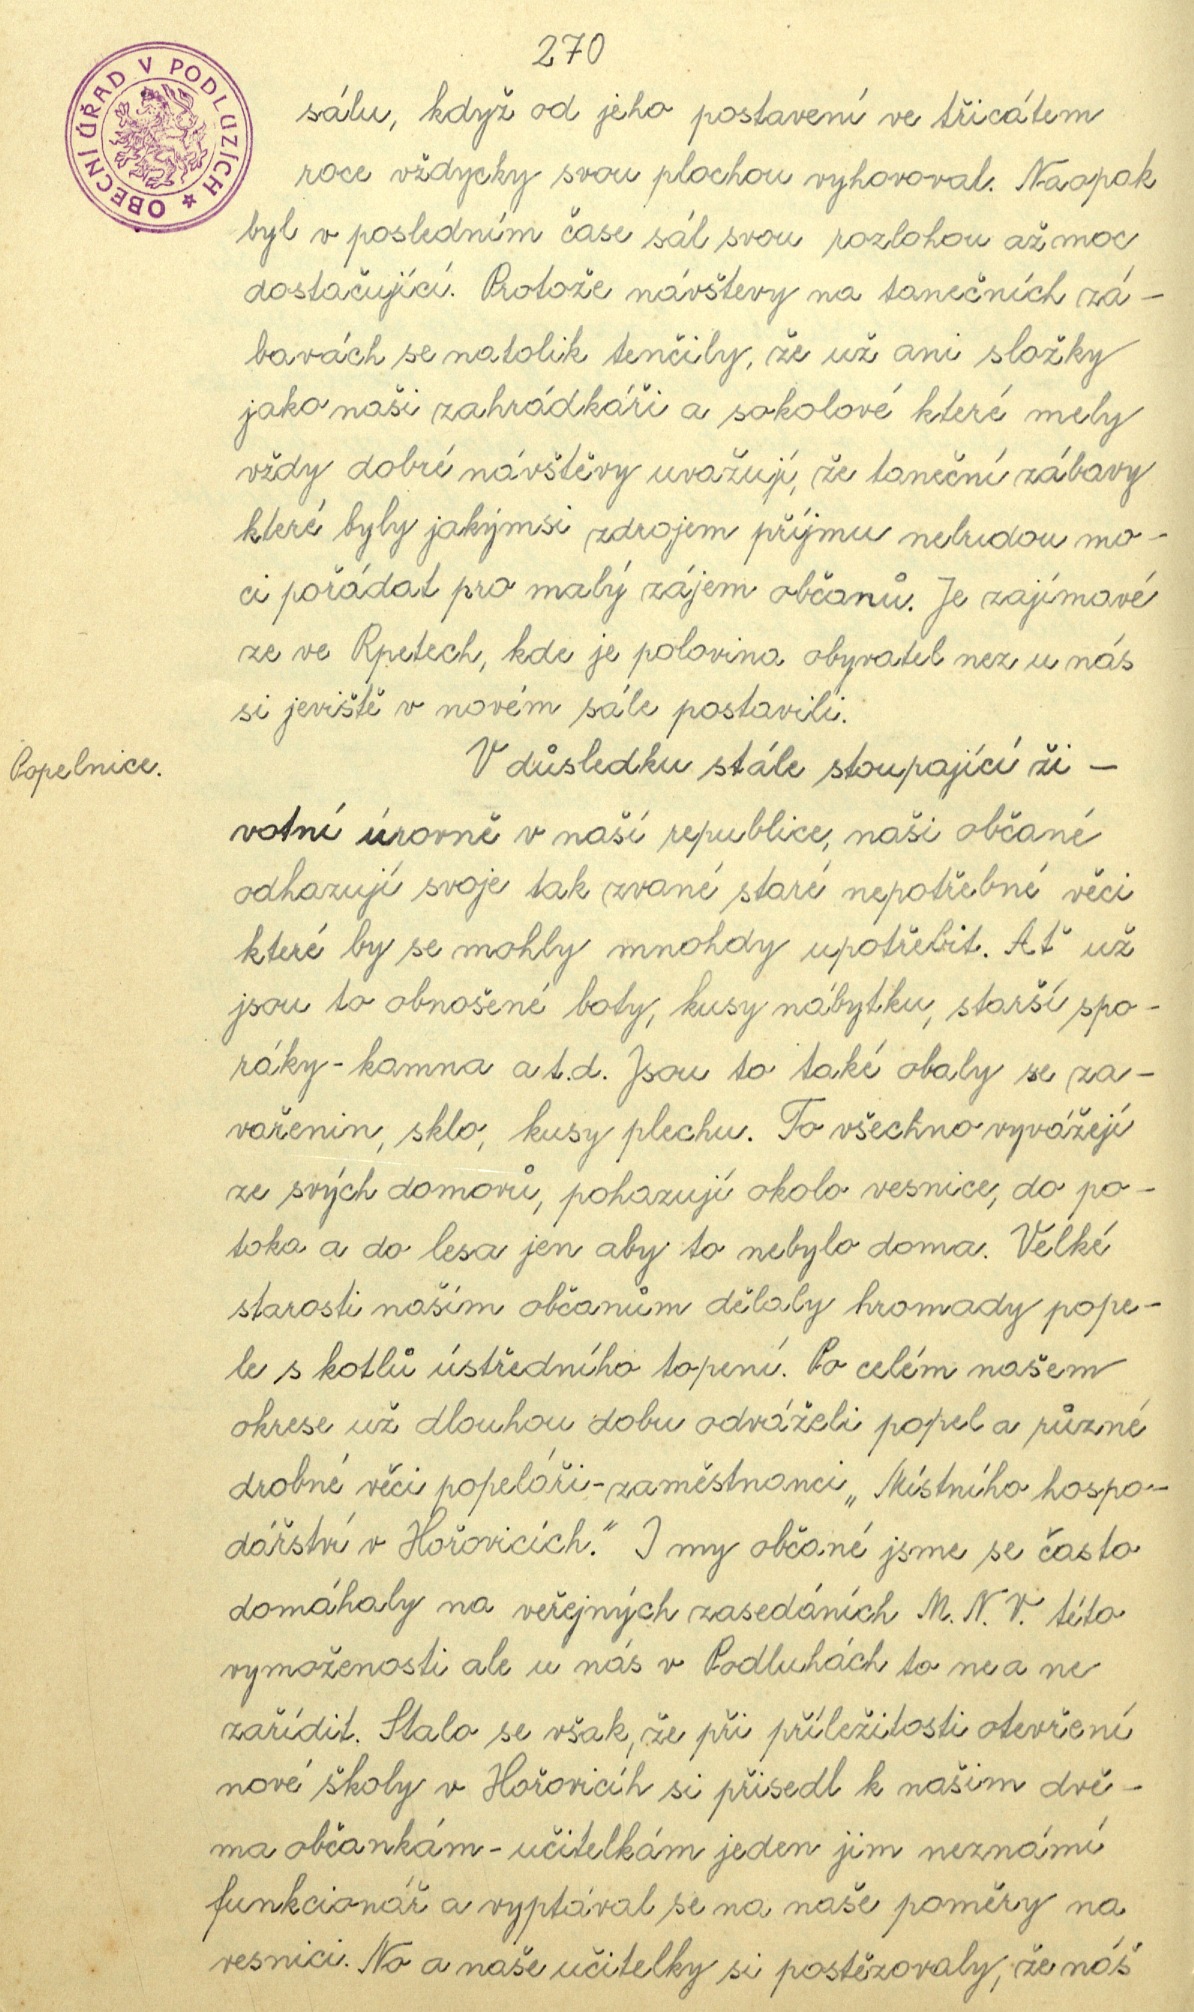 270
OBECNÍ ÚŘAD V PODLUZÍCH
sálu, když od jeho postavení ve třicátem
roce vždycky svou plochou vyhovoval. Naopak
byl v posledním čase sál svou rozlohou až moc
dostačující. Protože návštevy na tanečních zá-
bavách se natolik tenčily, že už ani složky
jako naši zahrádkáři a sokolové které mely
vždy dobré návštěvy uvažují, že taneční zábavy
které byly jakýmsi zdrojem příjmu nebudou mo-
ci pořádat pro malý zájem občanů. Je zajímavé
ze ve Rpetech, kde je polovina obyvatel nez u nás
si jeviště v novém sále postavili.
Popelnice.
V důsledku stále stoupající ži-
votní úrovně v naší republice, naši občané
odhazují svoje tak zvané staré nepotřebné věci
které by se mohly mnohdy upotřebit. Ať už
jsou to obnošené boty, kusy nábytku, starší spo-
ráky-kamna a t.d. Jsou to také obaly se za-
vařenin, sklo, kusy plechu. To všechno vyvážejí
ze svých domovů, pohazují okolo vesnice, do po-
toka a do lesa jen aby to nebylo doma. Velké
starosti našim občanům dělaly hromady pope-
le s kotlů ústředního topení. Po celém našem
okrese už dlouhou dobu odváželi popel a různé
drobné věci popeláři-zaměstnanci „Místního hospo-
dářství v Hořovicích." I my občané jsme se často
domáhaly na veřejných zasedáních M. N. V. této
vymoženosti ale u nás v Podluhách to ne a ne
zařídit. Stalo se však, že při příležitosti otevření
nové školy v Hořovicíh si přisedl k našim dvě-
ma občankám-učitelkám jeden jim neznámí
funkcionář a vyptával se na naše poměry na
vesnici. No a naše učitelky si postězovaly, že náš